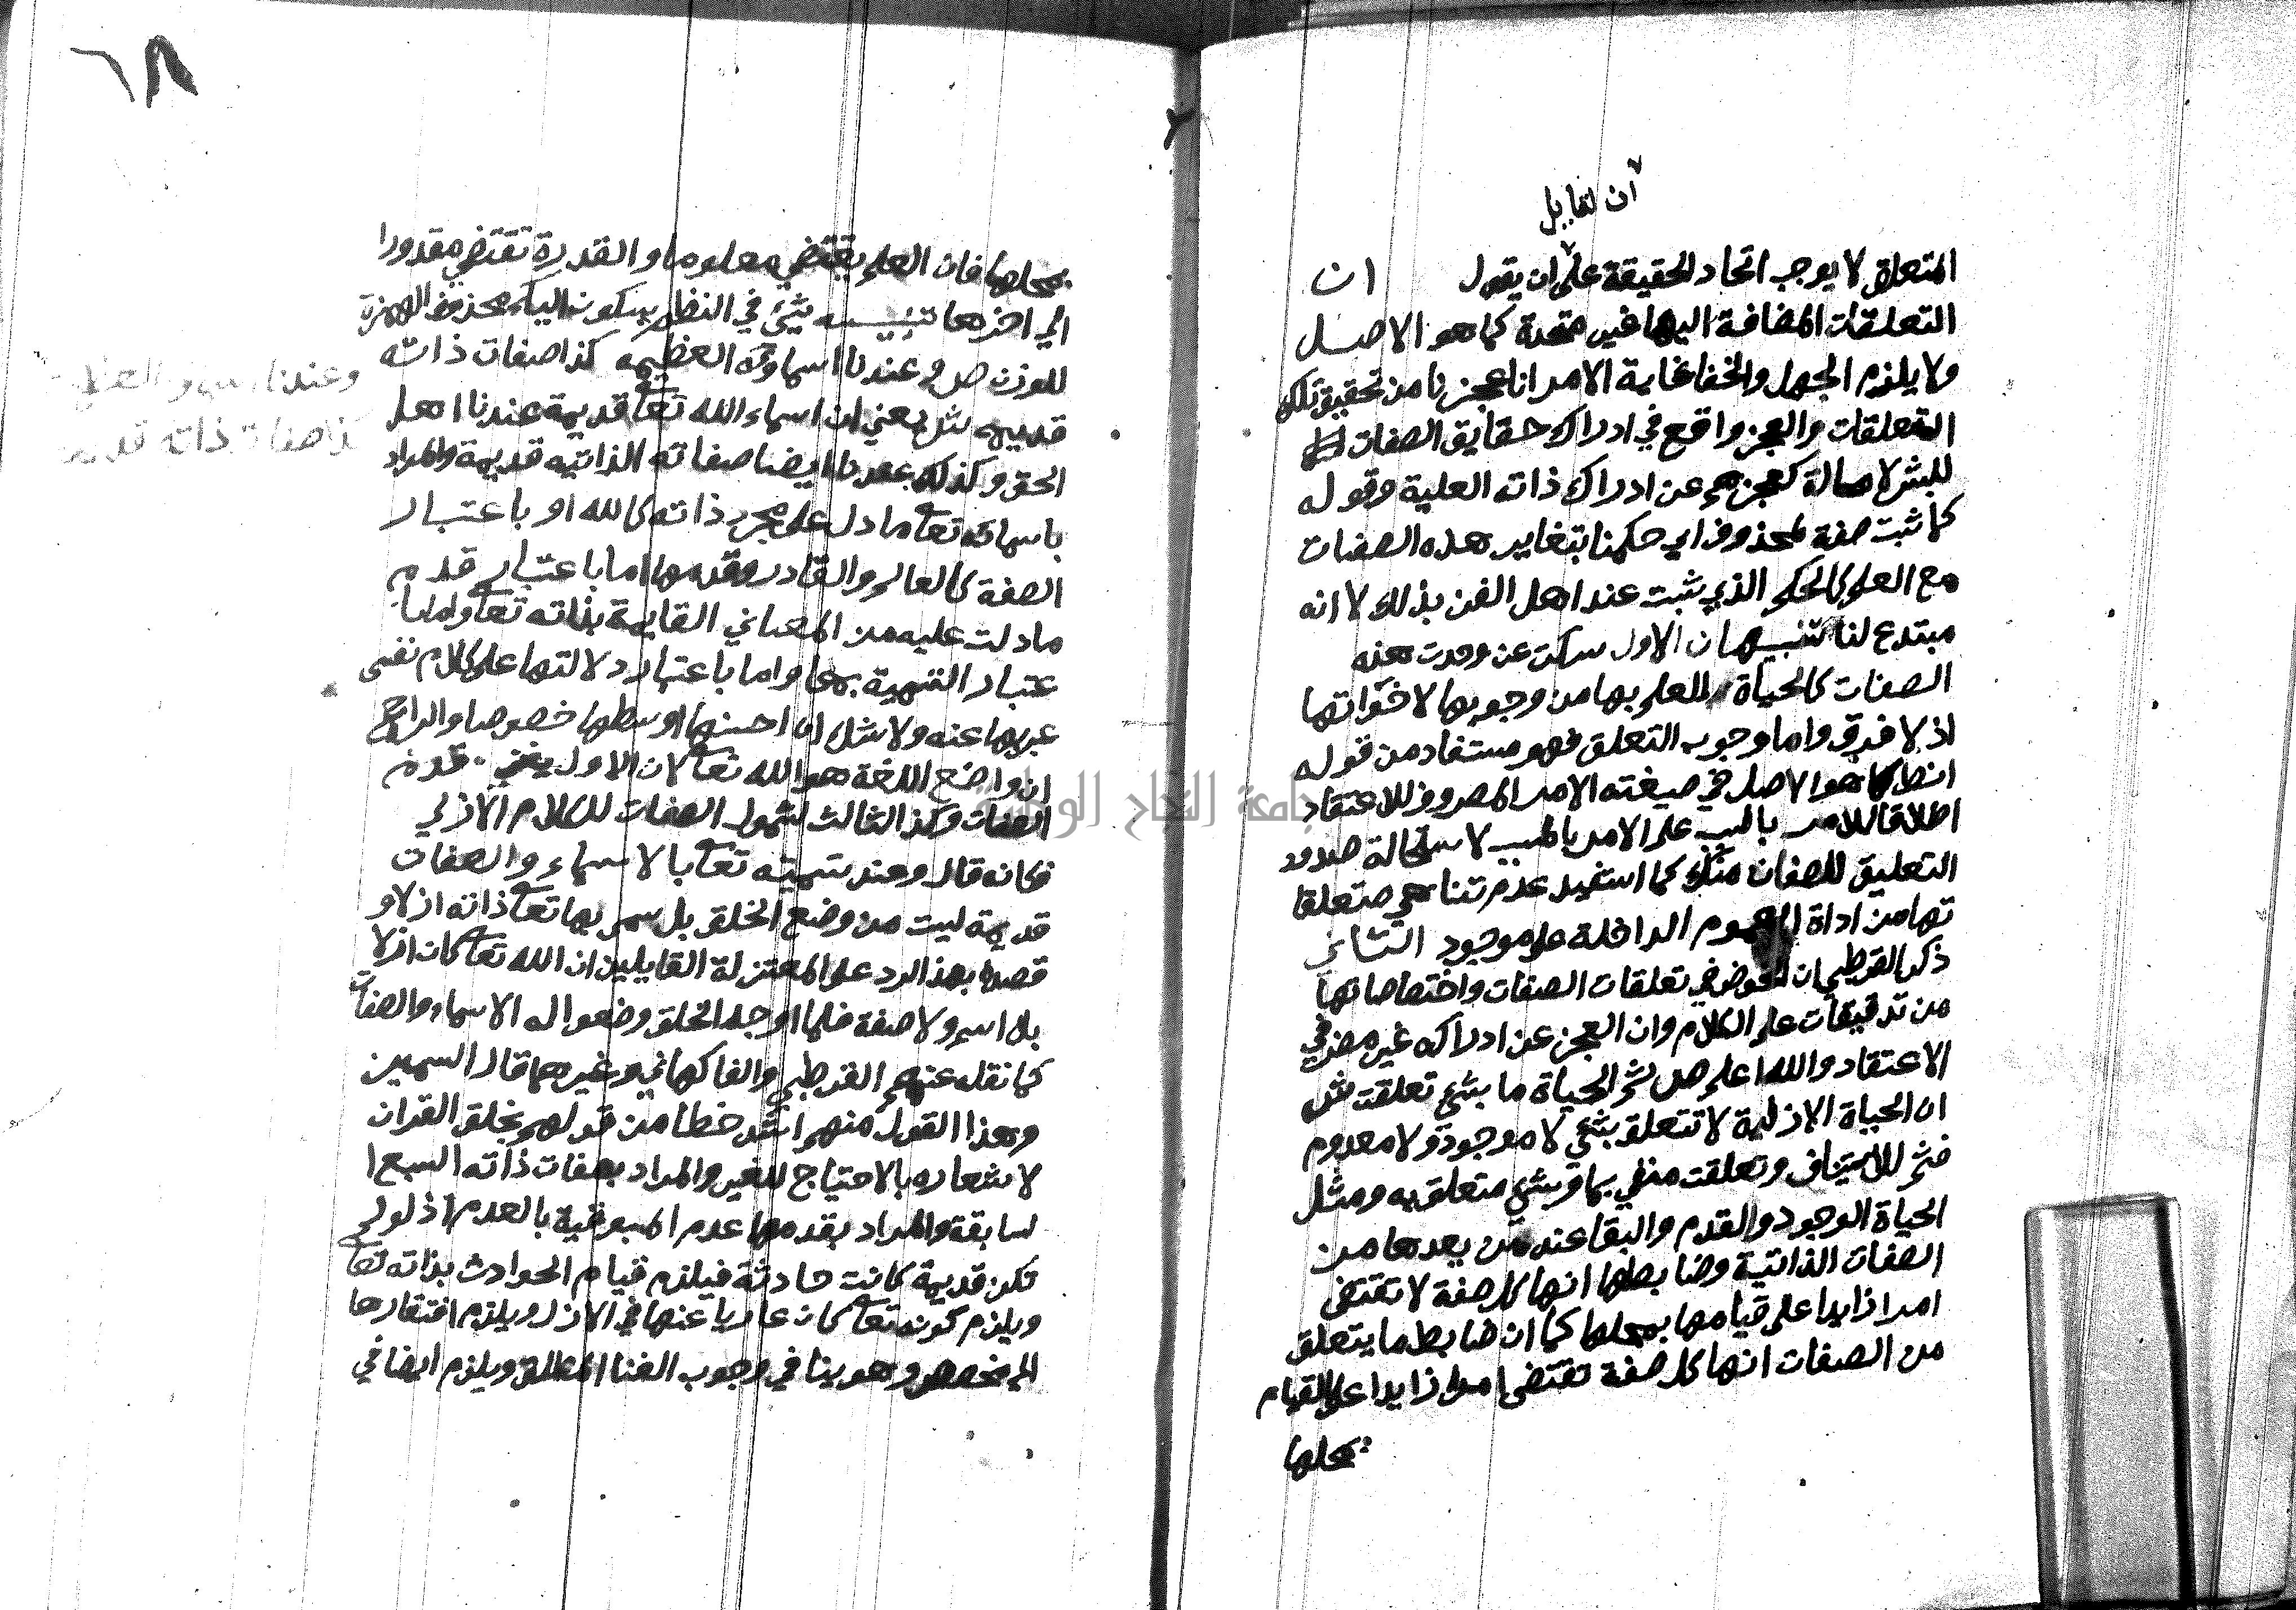 آن لقايل
المتعلق لا يوجب اتحاد الحقيقة على ان يقول ان
التعلقات المضافة اليها غير متحدة كما هو الاصل
ولا يلزم الجهل والخفا غاية الامر انا عجزنا من تحقيق تلك
التعلقات والعجز واقع في ادراك حقايق الصفات
للبشر لا محالة كعجزهم عن ادراك ذاته العلية وقوله
كما ثبت صفة لمحذوف اي حكمنا بتغاير هذه الصفات
مع العلم كالحكم الذي ثبت عند اهل الفن بذلك لا انه
مبتدع لنا تنبيهان الاول سكت عن وحدت هذه
الصفات كالحياة للعلم بها من وجوبها لاخواتها
اذ لا فرق واما وجوب التعلق فهو مستفاد من قوله
انط كما هو الاصل في صيغته الامر المصروف للاعتقاد
اطلاقا للامر بالسبب على الامر بالمسبب لاستحالة صدور
التعليق للصفات منك كما استفيد عدم تناهي متعلقا
تها من اداة العموم الداخلة على موجود الثاني
ذكر القرطبي ان الخوض في تعلقات الصفات واختصاصاتها
من تدقيقات علم الكلام وان العجز عن ادراكه غير مضر في
الاعتقاد والله اعلم ص ثم الحياة ما بشئ تعلقت ش
ان الحياة الازلية لا تتعلق بشئ لا موجود ولا معدوم
فثم للاستيناف وتعلقت منفي بما وبشئ متعلق به ومثل
الحياة الوجود والقدم والبقا عند من يعدها من
الصفات الذاتية وضابطها انها كل صفة لا تقتضى
امرا زايدا على قيامها بمحلها كما ان ضابط ما يتعلق
من الصفات انها كل صفة تقتضى امرا زايدا على القيام
بمحلها
٦٨
بمحلها فان العلم يقتضي معلوما والقدرة تقتضي مقدورا
الي اخرها تنبيه شئ في النظم بسكون الياء محذوف الهمزة
للوزن ص وعندنا اسماؤه العظيمه كذا صفات ذاته
قديمه ش يعني ان اسماء الله تعا قديمة عندنا اهل
الحق وكذلك عندنا ايضا صفاته الذاتيه قديمة والمراد
باسمائه تعا ما دل على مجرد ذاته كالله او باعتبار
الصفة كالعالم والقادر وقدمها اما باعتبار قدم
ما دلت عليه من المعاني القايمة بذاته تعا واما با
عتبار التسمية بها واما باعتبار دلالتها على كلام نفسى
عبر بها عنه ولا شك ان احسنها اوسطها خصوصا والراجح
ان واضع اللغة هو الله تعا لان الاول يغني قدم
الصفات وكذا الثالث لشمول الصفات للكلام الازلي
فكانه قال وعند تسميته تعا بالاسماء والصفات
قديمة ليست من وضع الخلق بل سمى بها تعا ذاته ازلا و
قصده بهذا الرد على المعتزلة القايلين ان الله تعا كان ازلا
بلا اسم ولا صفة فلما اوجد الخلق وضعوا له الاسماء والصفات
كما نقله عنهم القرطبي والفاكهاني وغيرهما قال السمين
وهذا القول منهم اشد خطا من قولهم بخلق القران
لاشعاره بالاحتياج للغير والمراد بصفات ذاته السبع ا
لسابقة والمراد بقدمها عدم المسبوقية بالعدم اذ لو لم
تكن قديمة كانت حادثة فيلزم قيام الحوادث بذاته تعا
ويلزم كونه تعا كان عاريا عنها في الازل ويلزم افتقارها
الي مخصص وهو ينافي وجوب الغنا المطلق ويلزم ايضا في
وعندنا
كذا صفات ذاته قديمه
جامعة النجاح الوطنية